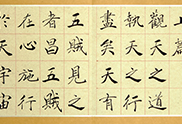 上篇
觀天之道
執天之行
盡矣天有
五賊見之
者昌五賊
在心施行
於天宇宙